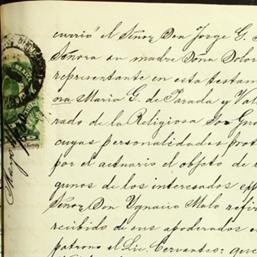 currió el Señor Don Jorge G. S
Señora su madre Doña Dolor
representante en esta testam
na Maria G. de Parada y Val
rado de la Religiosa Sor Gua
cuyas personalidades prot
por el actuario el objeto de
gunos de los interesados exp
Señor Don Ygnacio Malo refir
recibido de sus apoderados e
patrono el Lic. Cervantes: que